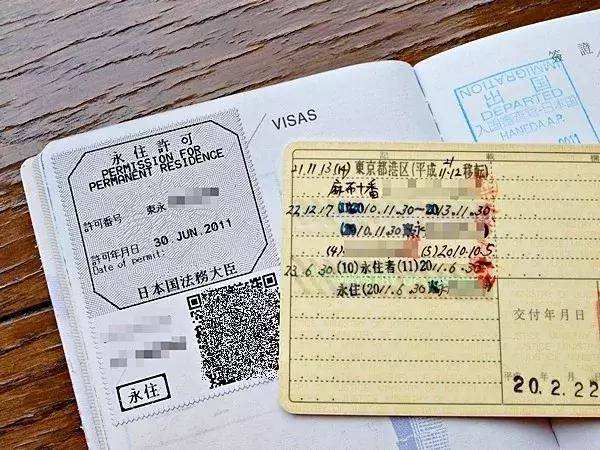 VISAS
簽證
永住許可
PERMISSION FOR
PERMANENT RESIDENCE
許可番号 東永
許可年月日 30. JUN. 2011
Date of permit:
日本国法務大臣
永住
IMMIGRATION
出国
DEPARTED
HANEDA A.P.
21.11.13 (14) 東京都港区(平成21.11.12移転)
麻布十番
22.12.17. 2010.11.30-2013.11.30
(2010.11.30.東
(4) (5) 2010.10.5
23.6.30. (10) 永住者 (11) 2011.6.30
永住 (2011.6.30
交付年月日
年 月 日
20.2.22